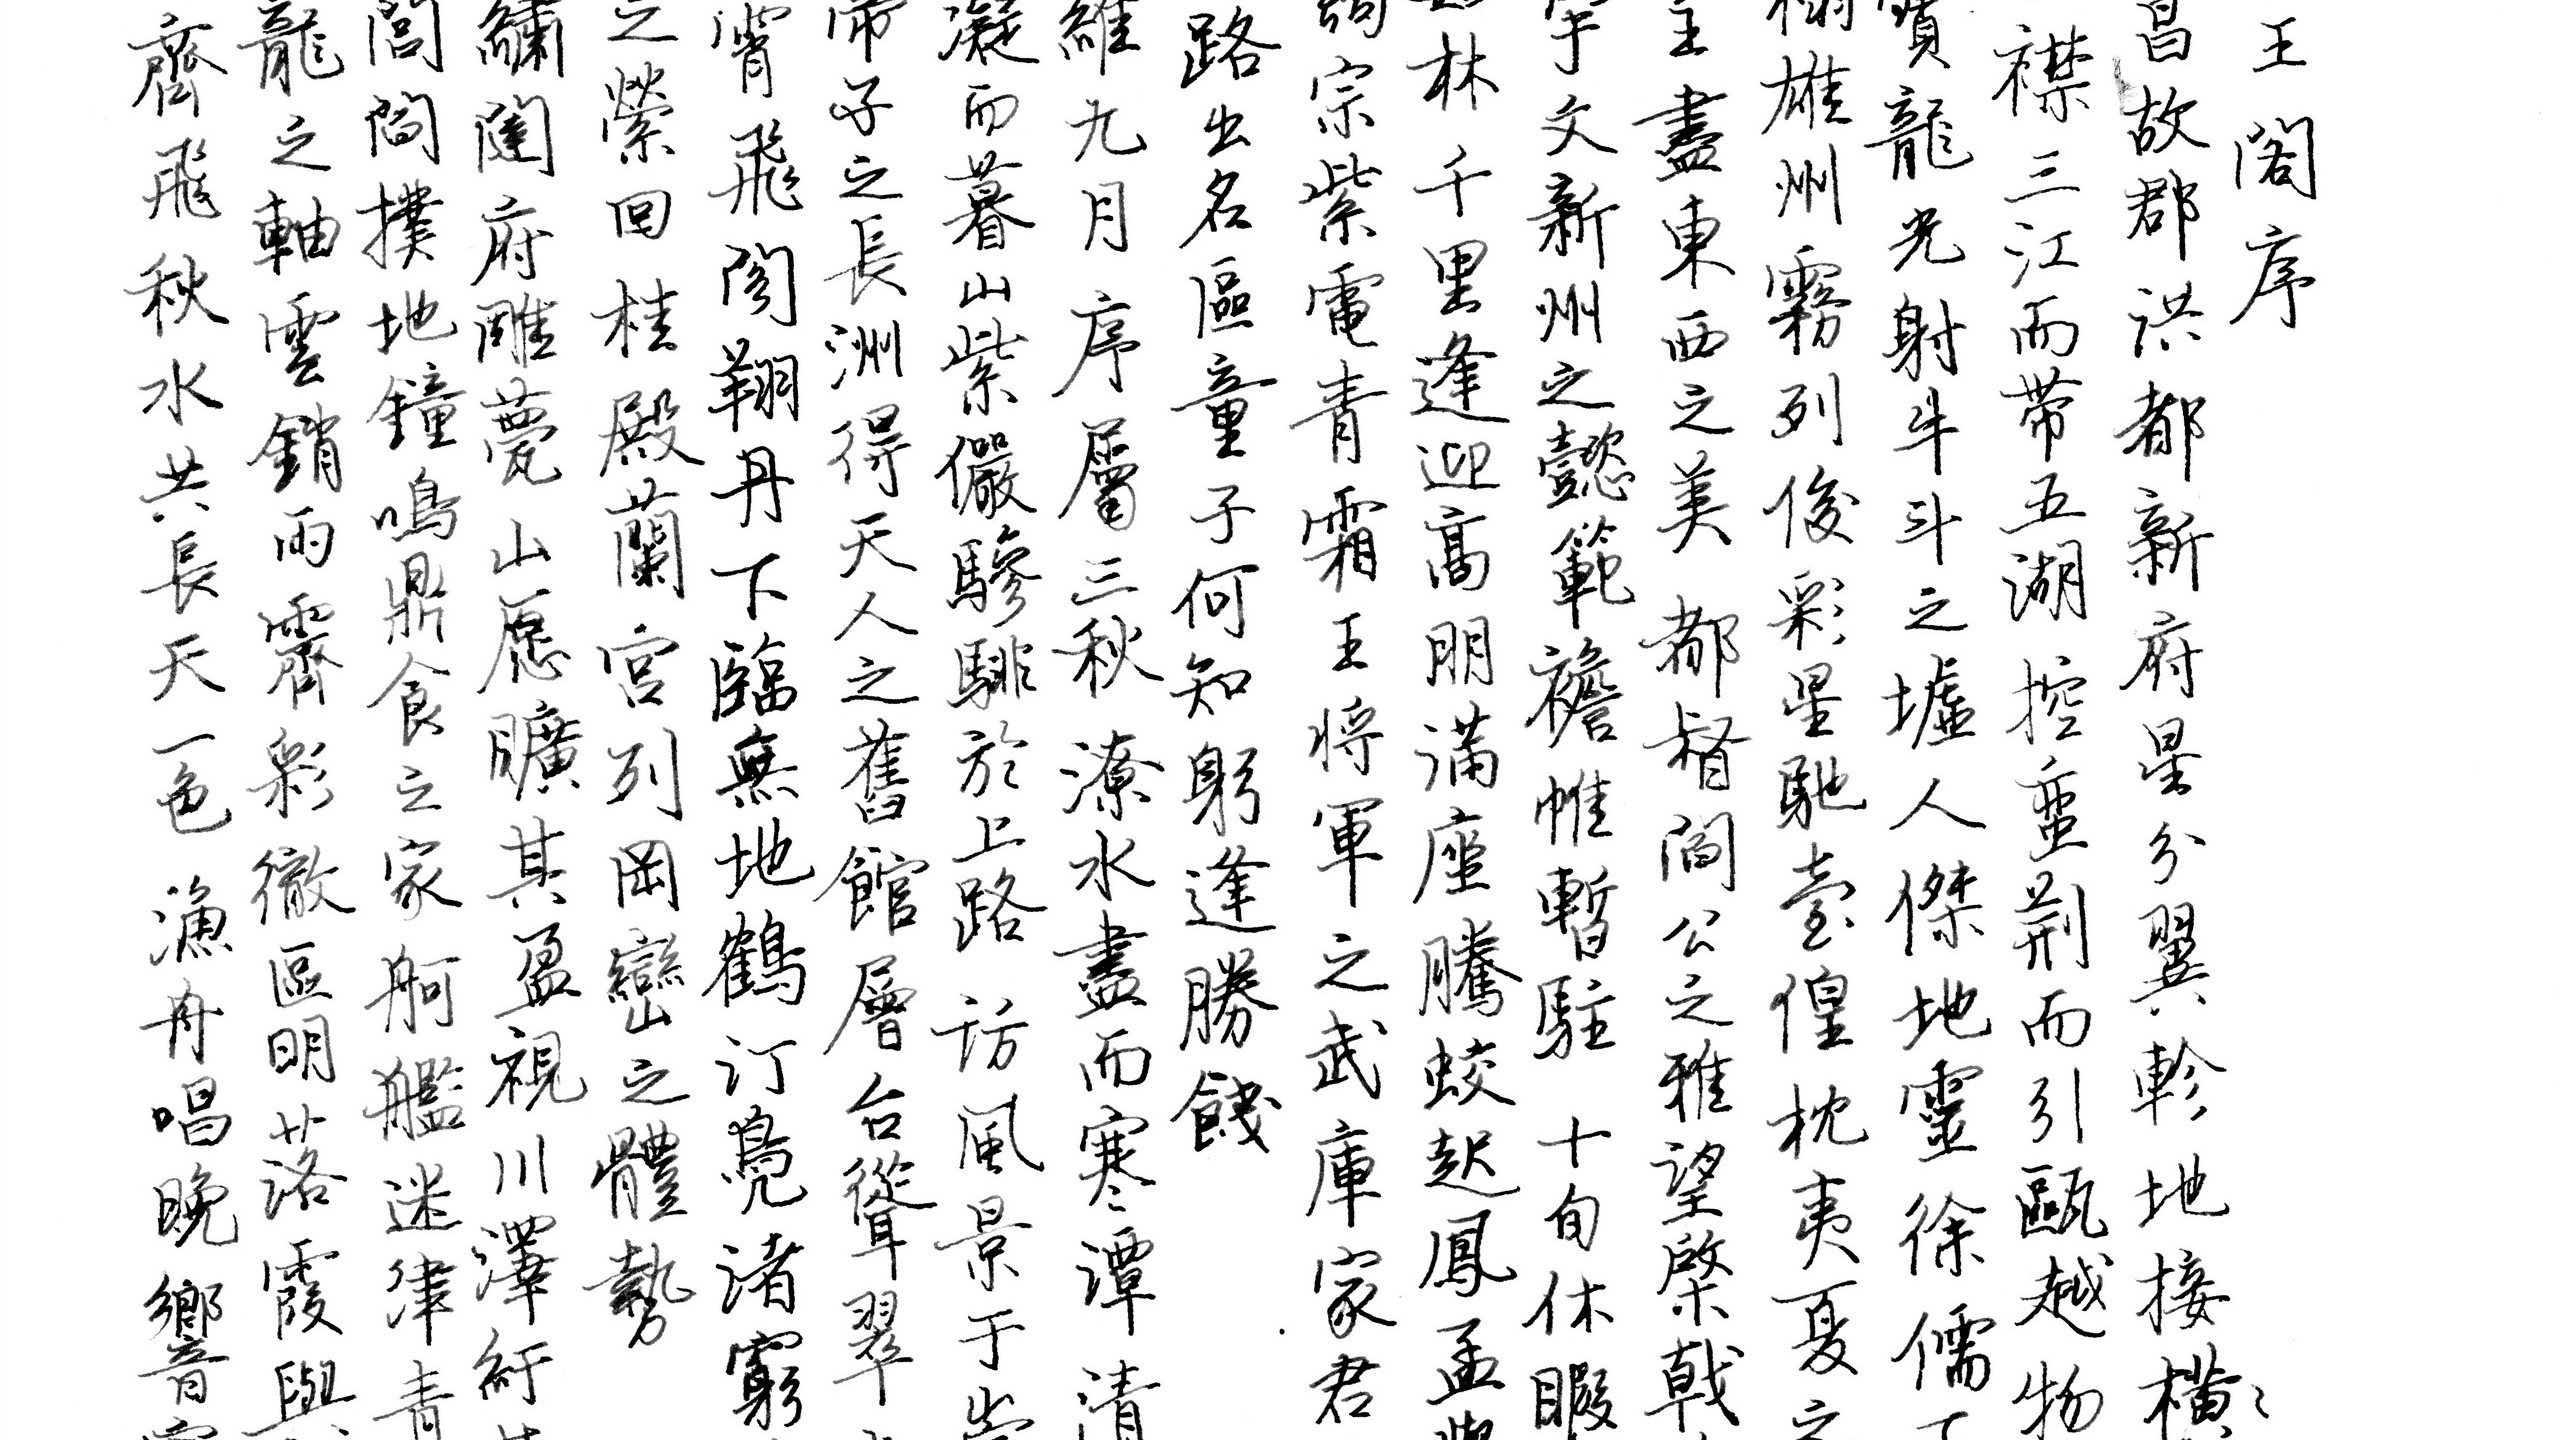 王閣序
昌故郡洪都新府星分翼軫地接橫
襟三江而带五湖控蛮荆而引甌越物
寶龍光射牛斗之墟人傑地靈徐儒下
榻雄州霧列俊彩星馳臺隍枕夷夏之
主盡東西之美都督閻公之雅望棨戟
宇文新州之懿範襜帷暫駐十旬休暇
林千里逢迎高朋满座騰蛟起鳳孟
詞宗紫電青霜王将軍之武庫家君
路出名區童子何知躬逢勝餞
維九月序屬三秋潦水盡而寒潭清
凝而暮山紫儼驂騑於上路訪風景于崇
帝子之長洲得天人之舊館層台聳翠
霄飛閣翔丹下臨無地鶴汀鳧渚窮
之縈回桂殿蘭宮列岡巒之體勢
繡闥府雕甍山愿曠其盈視川澤紆
閭閻撲地鐘鳴鼎食之家舸艦迷津青
龍之軸雲銷雨霽彩徹區明落霞與
齊飛秋水共長天一色漁舟唱晚響